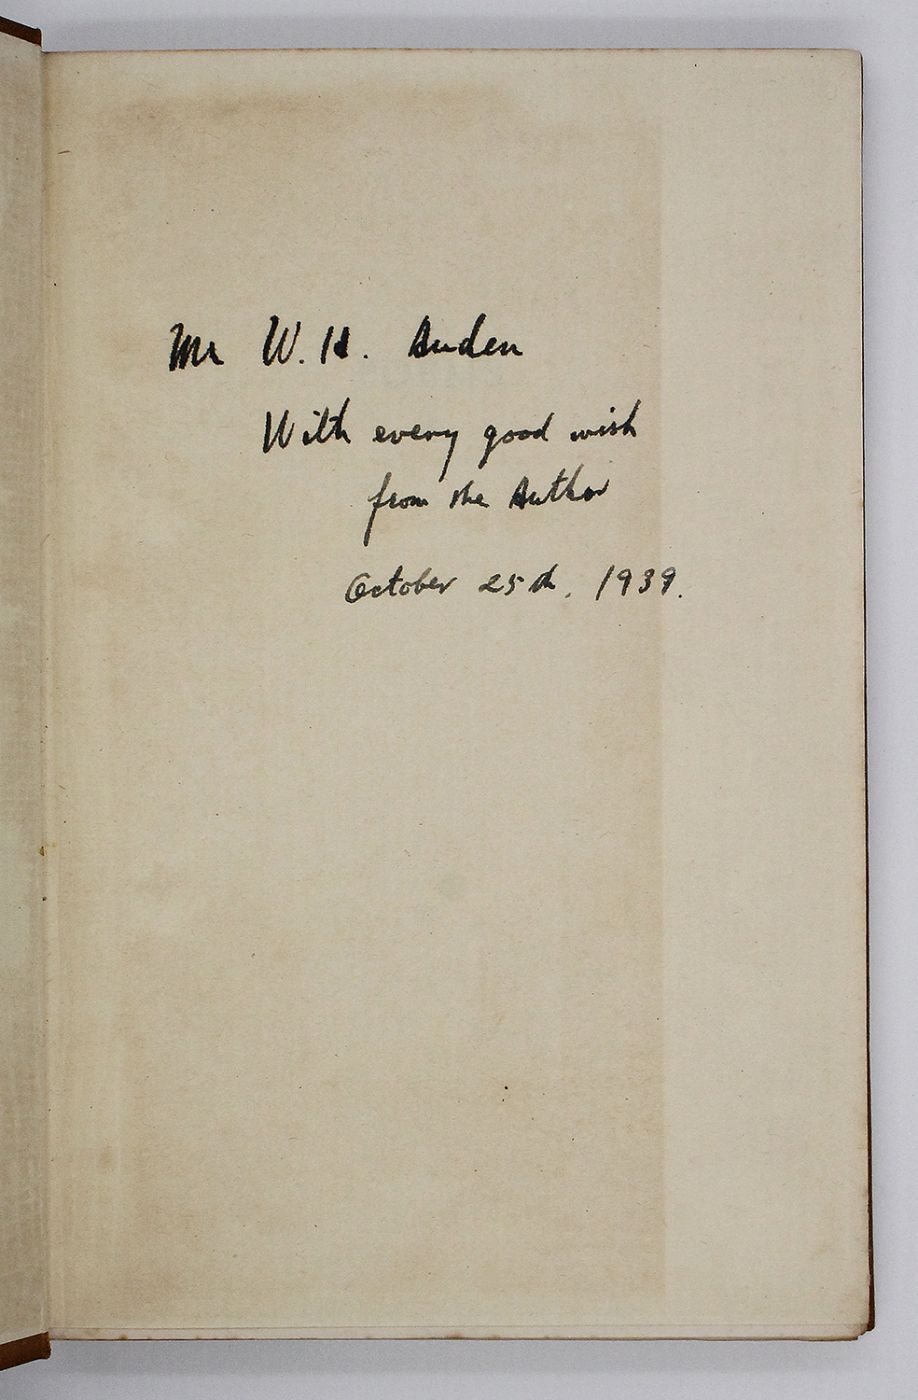 Mr W. H. Auden
With every good wish
from the Author
October 25th. 1939.